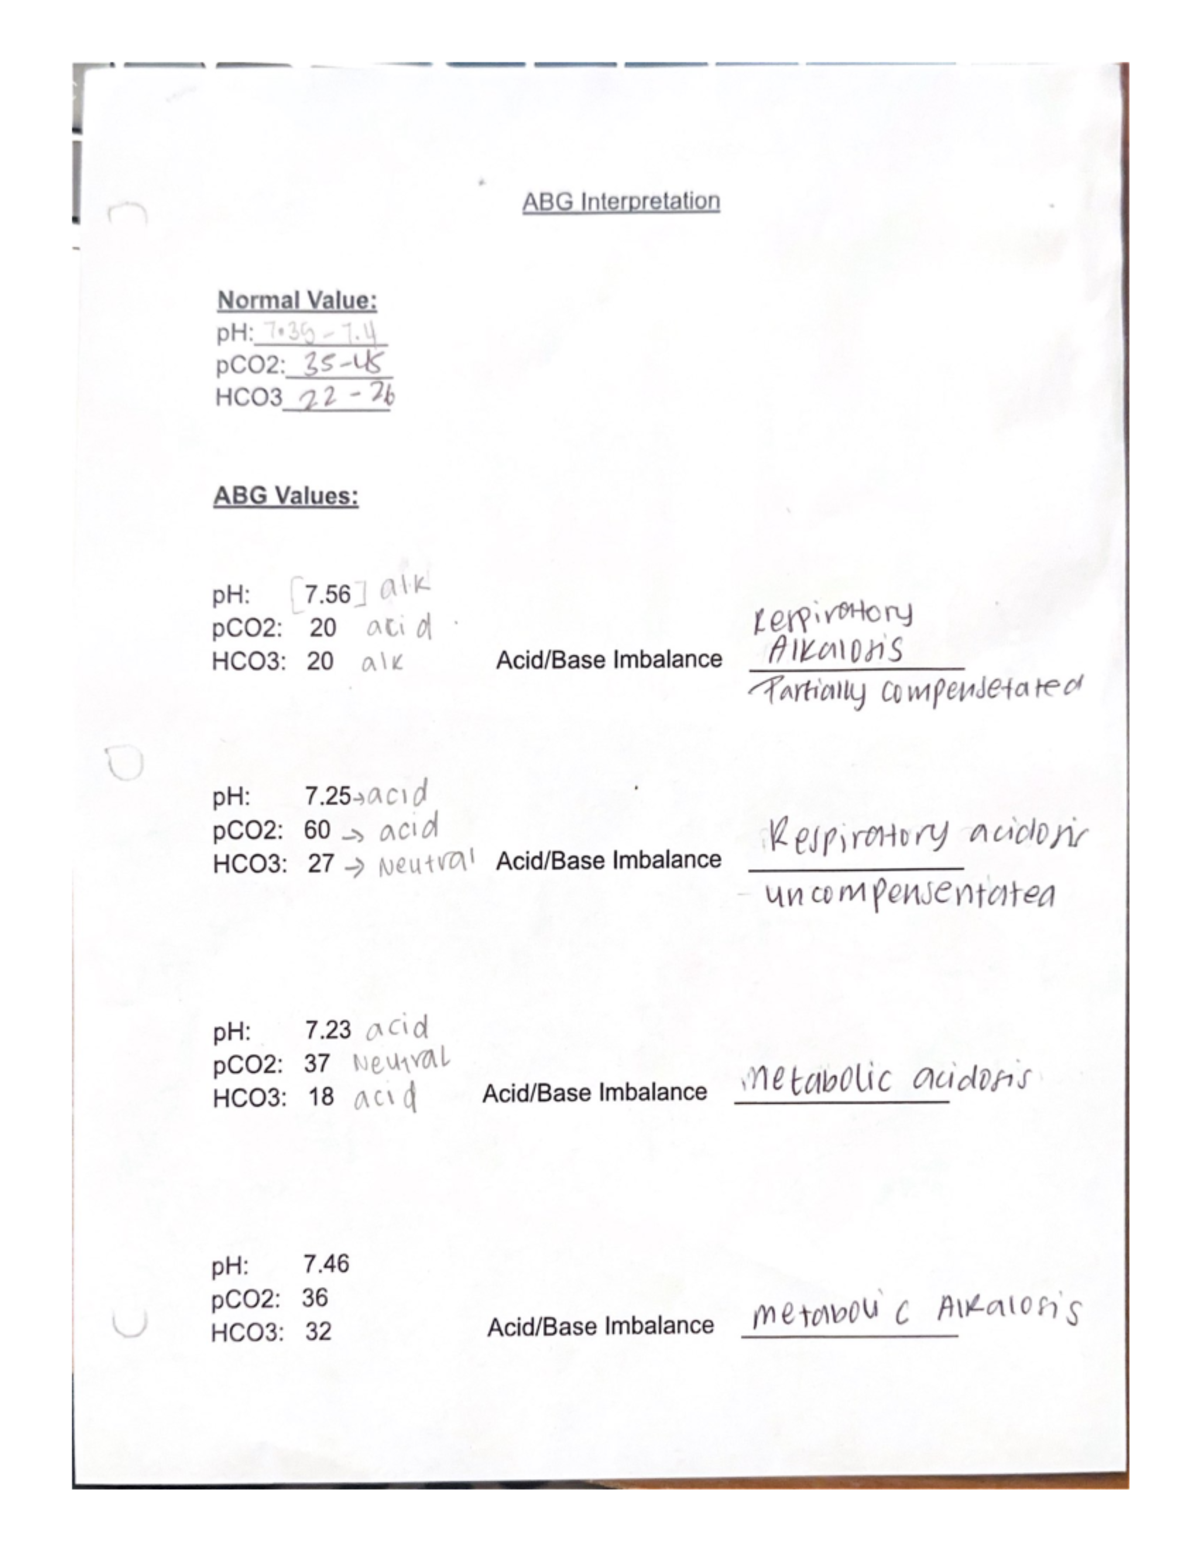 ABG Interpretation
Normal Value:
pH: 7.35 - 7.4
pCO2: 35-45
HCO3 22 - 26
ABG Values:
pH: [7.56] alk
pCO2: 20 acid
HCO3: 20 alk Acid/Base Imbalance Respiratory
Alkalosis
Partially compensetated
pH: 7.25→acid
pCO2: 60 → acid
HCO3: 27 → Neutral Acid/Base Imbalance Respiratory acidosis
- uncompensentated
pH: 7.23 acid
pCO2: 37 Neutral
HCO3: 18 acid Acid/Base Imbalance metabolic acidosis
pH: 7.46
pCO2: 36
HCO3: 32 Acid/Base Imbalance metabolic Alkalosis